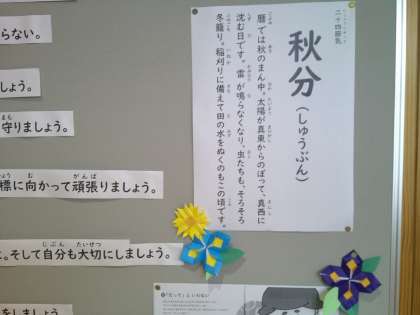 二十四節気
秋分(しゅうぶん)
暦では秋のまん中。太陽が真東からのぼって、真西に
沈む日です。雷が鳴らなくなり、虫たちも、そろそろ
冬籠り。稲刈りに備えて田の水をぬくのもこの頃です。
らない。
しょう。
守りましょう。
標に向かって頑張りましょう。
。そして自分も大切にしましょう。
をしましょう